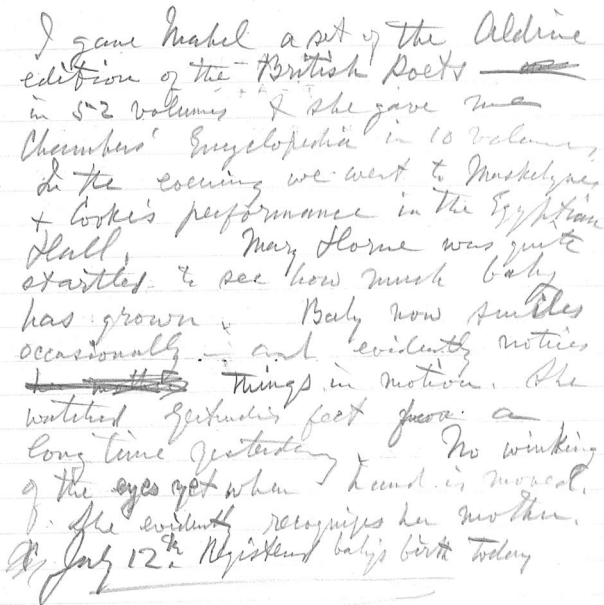 I gave Mabel a set of the Aldine
edition of the British Poets
in 52 volumes & she gave me
Chambers' Encyclopedia in 10 volumes.
In the evening we went to Maskelynes
& Cooke's performance in the Egyptian
Hall. Mary Horne was quite
startled to see how much baby
has grown. Baby now smiles
occasionally and evidently notices
things in motion. She
watched Gertrude's feet for a
long time yesterday. No winking
of the eyes yet when hand is moved.
She evidently recognizes her mother.
July 12th. Registered baby's birth today